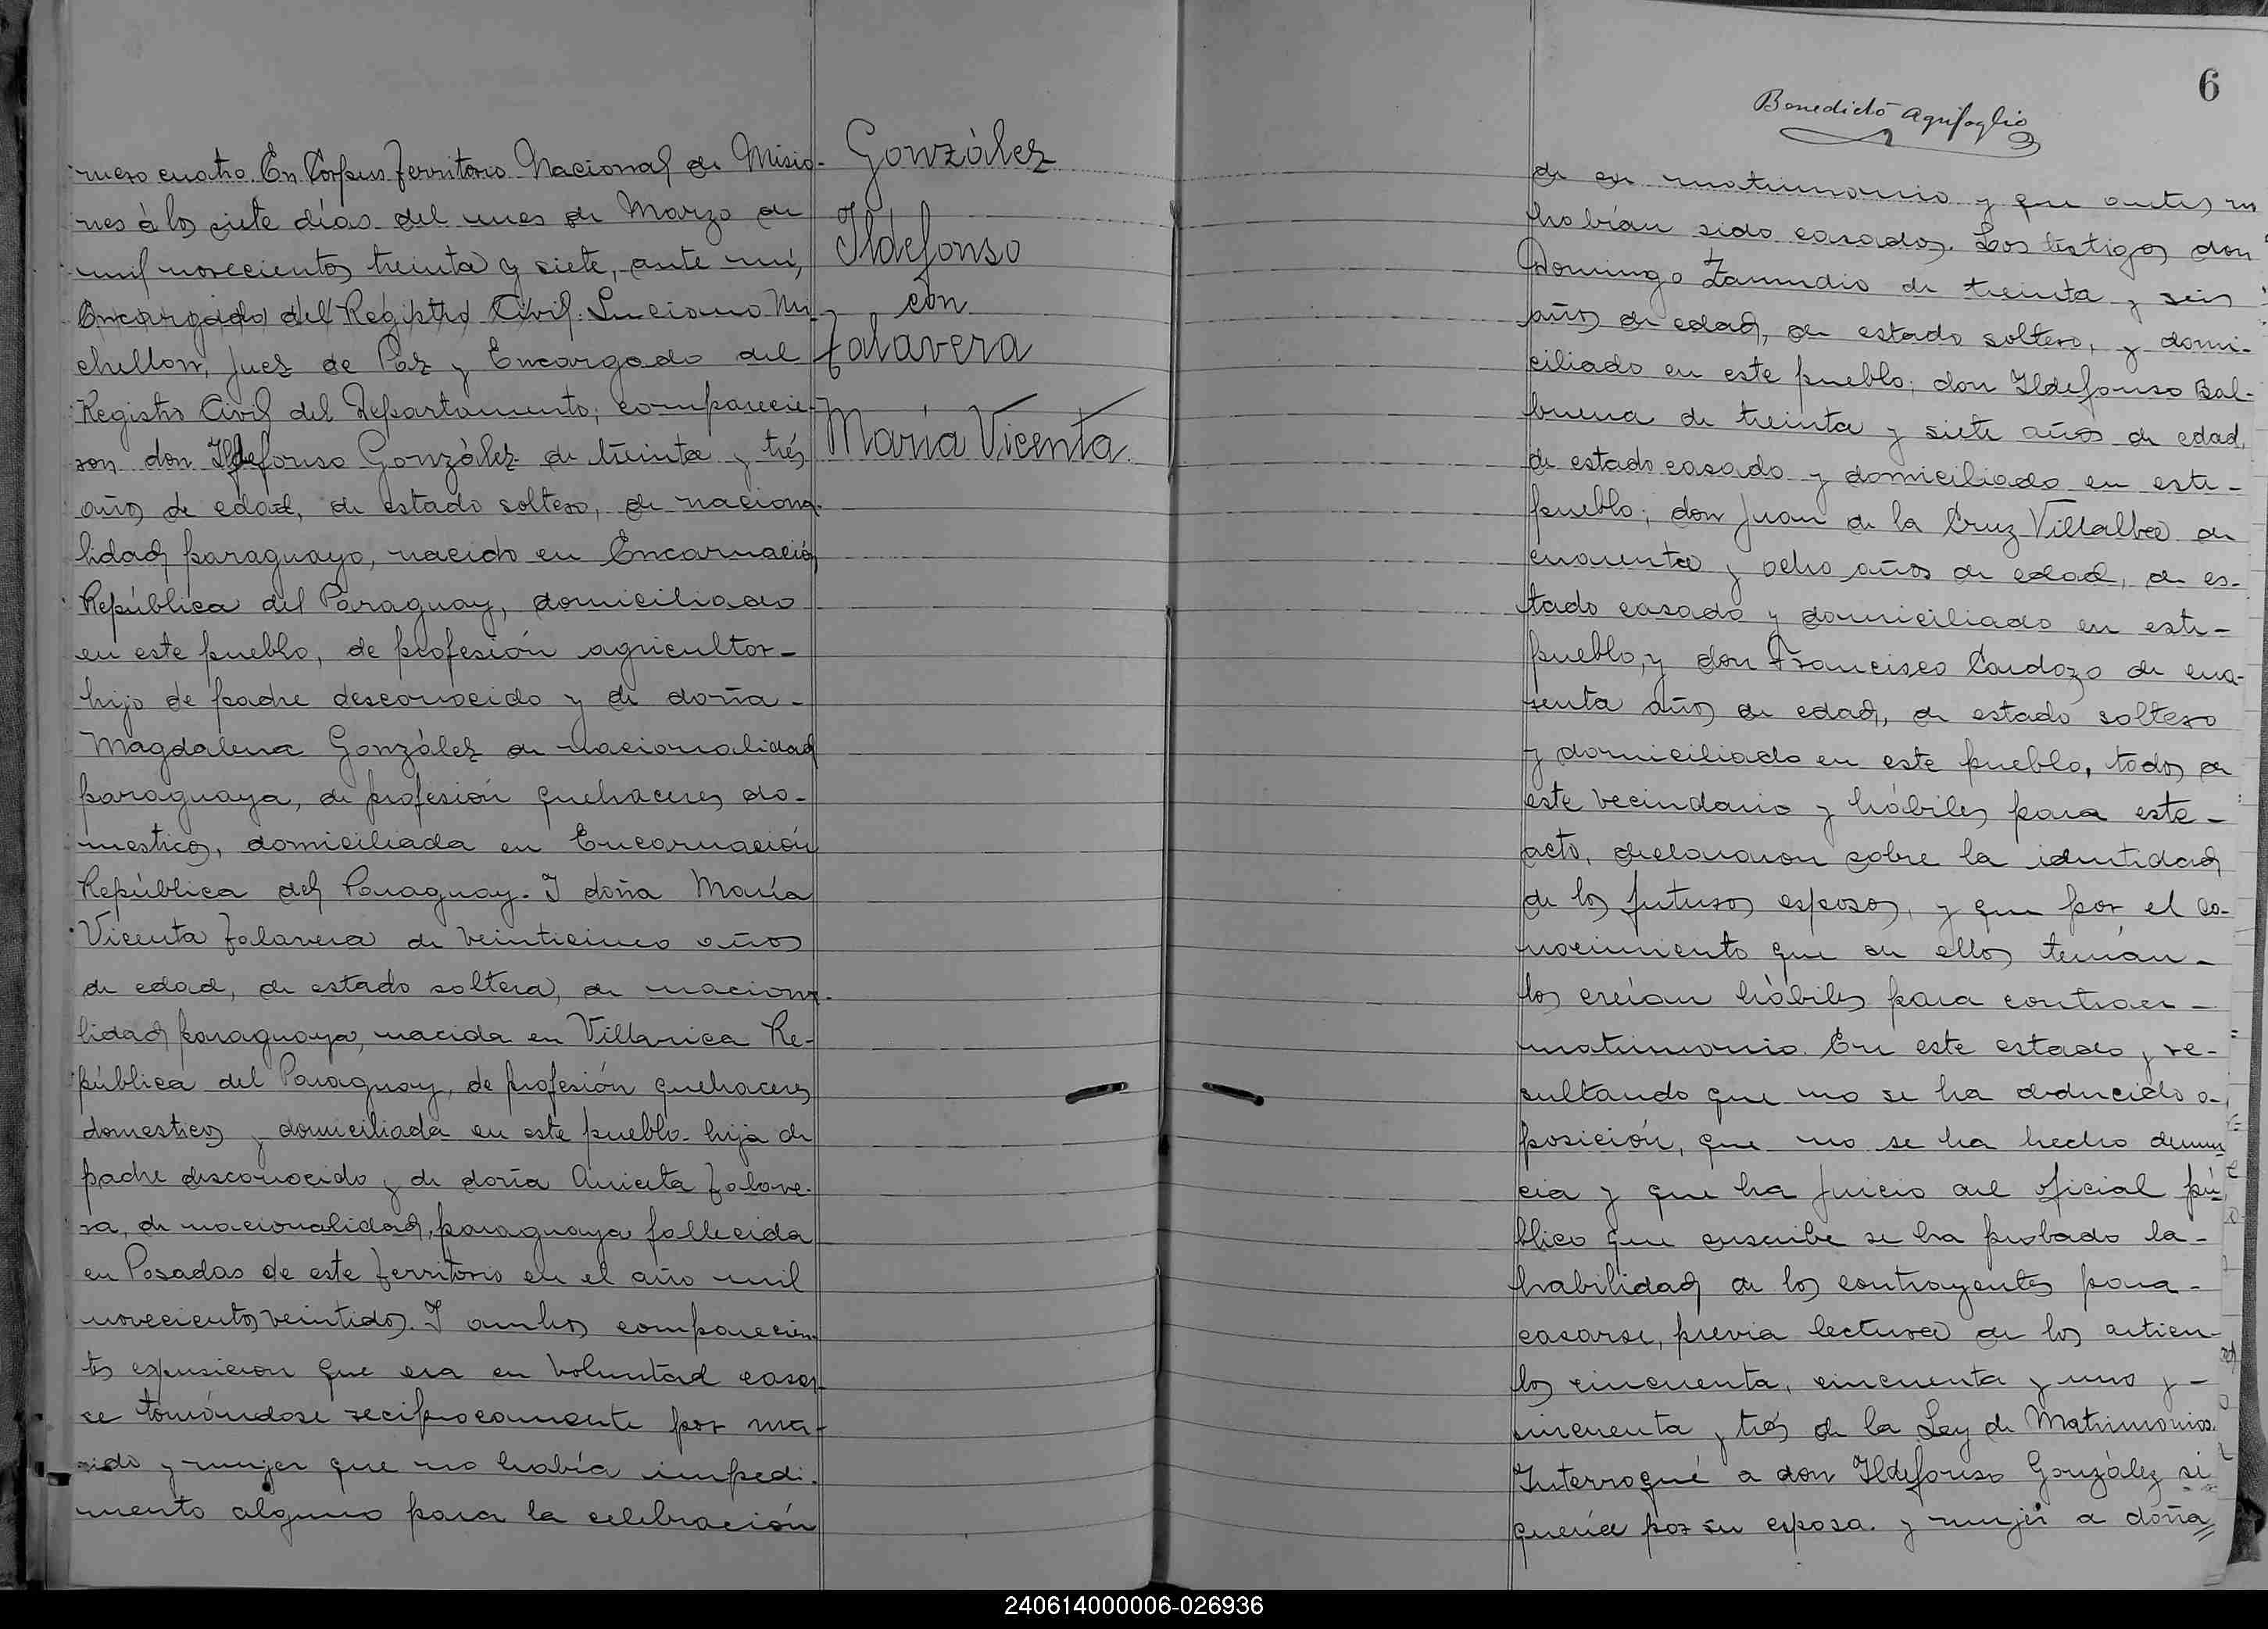 mero cuatro. En Corpus Territorio Nacional de Misio-
nes à los siete días del mes de Marzo de
mil novecientos treinta y siete, ante mí,
Encargado del Registro Civil. Luciano Mi-
chellon, Juez de Paz y Encargado del
Registro Civil del Departamento; comparecie-
ron don Ildefonso González de treinta y trés
años de edad, de estado soltero, de naciona-
lidad paraguayo, nacido en Encarnación
República del Paraguay, domiciliado
en este pueblo, de profesión agricultor-
hijo de padre desconocido y de doña-
Magdalena González de nacionalidad
paraguaya, de profesión quehaceres do-
mesticos, domiciliada en Encarnación
República del Paraguay. I doña María
Vicenta Talavera de veinticinco años
de edad, de estado soltera, de naciona-
lidad paraguaya, nacida en Villarica Re-
pública del Paraguay, de profesión quehaceres
domesticos y domiciliada en este pueblo- hija de
padre desconocido y de doña Anicita Talave-
ra, de nacionalidad, paraguaya fallecida
en Posadas de este Territorio en el año mil
novecientos veintidos. I ambos comparecien-
tes expusieron que era en voluntad casar-
se tomándose reciprocamente por ma-
rido y mujer que no había impedi-
mento alguno para la celebración
González
Ildefonso
con
Talavera
María Vicenta
6
Benedicto Aquifoglio
de ese matrimonio y que antes no
habían sido casados. Los testigos don
Domingo Zamudio de treinta y seis
años de edad, de estado soltero, y domi-
ciliado en este pueblo; don Ildefonso Bal-
buena de treinta y siete años de edad,
de estado casado y domiciliado en este-
pueblo; don Juan de la Cruz Villalba de
cuarenta y ocho años de edad, de es-
tado casado y domiciliado en este-
pueblo, y don Francisco Cardozo de cua-
renta años de edad, de estado soltero
y domiciliado en este pueblo, todos de
este vecindario y hábiles para este-
acto, declararon sobre la identidad
de los futuros esposos, y que por el co-
nocimiento que de ellos tenían-
los creían hábiles para contraer-
matrimonio. En este estado y re-
sultando que no se ha deducido o-
posición, que no se ha hecho denun-
cia y que ha juicio del oficial pú-
blico que suscribe se ha probado la-
habilidad de los contrayentes para-
casarse, previa lectura de los articu-
los cincuenta, cincuenta y uno y-
cincuenta y trés de la Ley de Matrimonios.
Interrogué a don Ildefonso González si
quería por su esposa. y mujer a doña
240614000006-026936